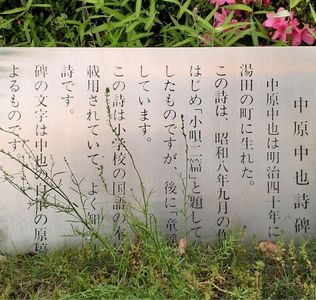 中原中也詩碑
中原中也は明治四十年に
湯田の町に生れた。
この詩は、昭和八年九月の作
はじめ「小唄二篇」と題して
したものですが、後に「童謡
しています。
この詩は小学校の国語の本
載用されていて、よく知
詩です。
碑の文字は中也の自筆の原稿
よるものです